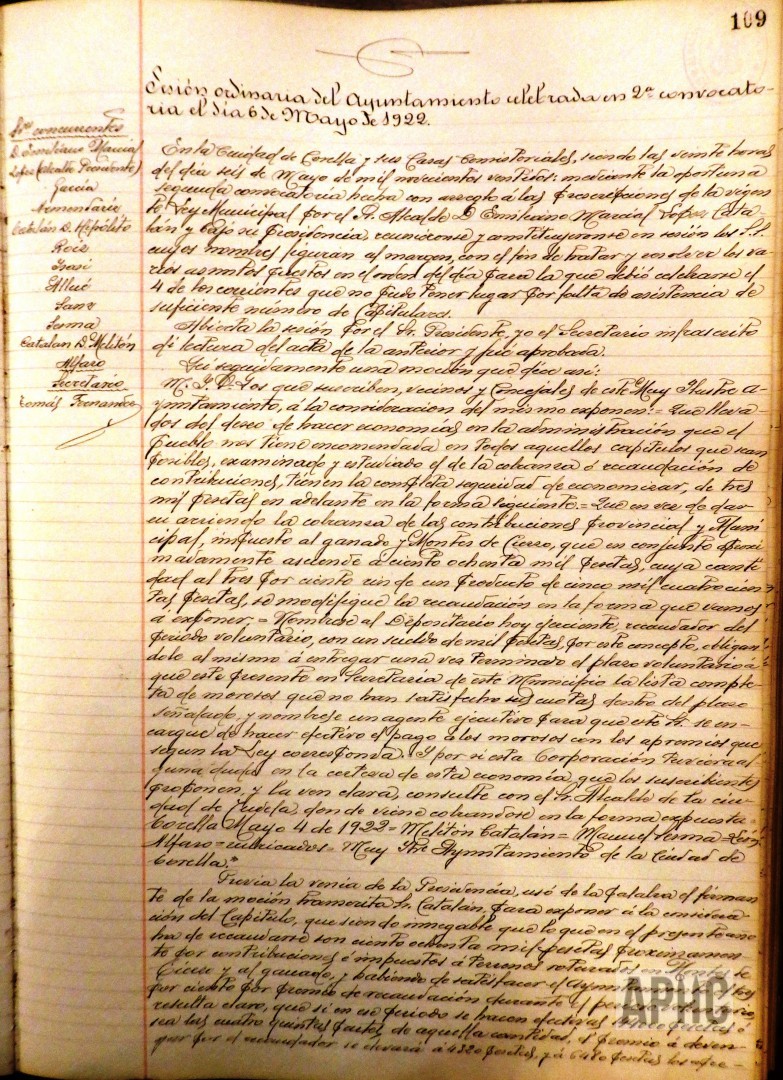 109
Sesión ordinaria del Ayuntamiento celebrada en 2ª convocato-
ria el dia 6 de Mayo de 1922.
Sres concurrentes
D. Emiliano Marcial
López (Alcalde Presidente)
García
Armentario
Catalán D. Hipólito
Ruiz
Isasi
Allué
Sanz
Serma
Catalán D. Melitón
Alfaro
Secretario
Tomás Fernandez
En la Ciudad de Corella y sus Casas Consistoriales, siendo las veinte horas
del dia seis de Mayo de mil novecientos veintidos: mediante la oportuna
segunda convocatoria hecha con arreglo á las prescripciones de la vigen-
te Ley Municipal por el Sr. Alcalde D. Emiliano Marcial López Cata-
lán y bajo su Presidencia, reuniéronse y constituyéronse en sesión los S.S.
cuyos nombres figuran al margen, con el fin de tratar y resolver los va-
rios asuntos puestos en el orden del dia para la que debió celebrarse el
4 de los corrientes que no pudo tener lugar por falta de asistencia de
suficiente número de Capitulares.
Abierta la sesión por el Sr. Presidente, yo el Secretario infrascrito
di lectura del acta de la anterior y fué aprobada.
Leí seguidamente una moción que dice asi:
M. I. Los que suscriben, vecinos y Concejales de este Muy Ilustre A-
yuntamiento, á la consideración del mismo exponen: = Que lleva-
dos del deseo de hacer economias en la administración que el
pueblo nos tiene encomendada en todos aquellos capitulos que sean
posibles, examinado y estudiado el de la cobranza ó recaudación de
contribuciones, tienen la completa seguridad de economizar, de tres
mil pesetas en adelante en la forma siguiente. = Que en vez de dar
en arriendo la cobranza de las contribuciones Provincial y Muni-
cipal, impuesto al ganado y Montes de Cierzo, que en conjunto aproxi-
madamente asciende á ciento ochenta mil pesetas, cuya canti-
dad al tres por ciento rinde un producto de cinco mil cuatrocien-
tas pesetas, se modifique la recaudación en la forma que vamos
a exponer. = Nombrese al Depositario hoy recaudador del
periodo voluntario, con un sueldo de mil pesetas por este concepto, obligan-
dole al mismo á entregar una vez terminado el plazo voluntario á
que este presente en Secretaria de este Municipio la lista comple-
ta de morosos que no han satisfecho sus cuotas dentro del plazo
señalado, y nombrese un agente ejecutivo para que este Sr. se en-
cargue de hacer efectivo el pago a los morosos con los apremios que
segun la Ley corresponda. Y por si esta Corporación tuviera al-
guna duda en la certeza de esta economia, que los suscribientes
proponen, y la ven clara, consulte con el Sr. Alcalde de la ciu-
dad de Tudela, donde viene cobrandose en la forma expuesta.
Corella Mayo 4 de 1922 = Melitón Catalán = Manuel Serma = León
Alfaro = rubricados = Muy Ilre Ayuntamiento de la Ciudad de
Corella."
Previa la venia de la Presidencia, usó de la palabra el firman-
te de la moción transcrita Sr. Catalán, para exponer á la considera-
ción del Capitulo, que siendo innegable que lo que en el presente año
ha de recaudarse son ciento ochenta mil pesetas proximamen-
te por contribuciones é impuestos á terrenos roturados en Montes de
Cierzo y al ganado, y habiendo de satisfacer el Ayuntamiento el tres
por ciento por premio de recaudación durante el periodo
resulta claro, que si en ese periodo se hacen efectivas
sea las cuatro quintas partes de aquella cantidad, el premio á deven-
gar por el recaudador se elevará á 4320 pesetas, y á 6480 pesetas los apre-
APHC